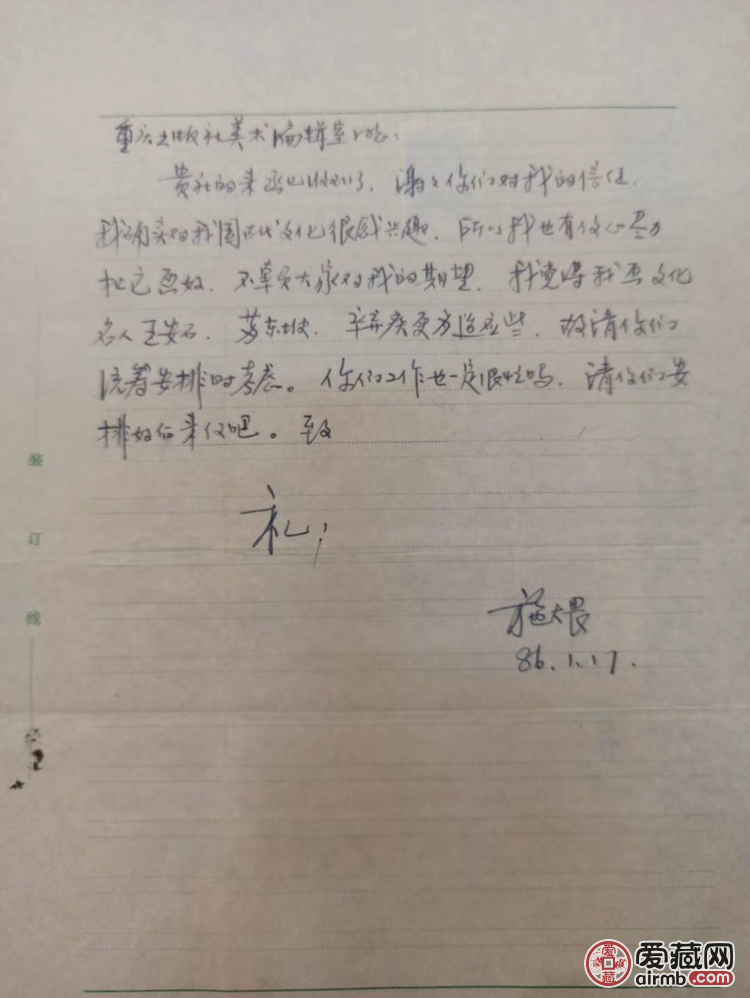 重庆出版社美术编辑室
贵社的来函已收到了，谢谢你们对我的信任。
我确实对我国古代文化很感兴趣，所以我也有信心尽力
把它画好，不辜负大家对我的期望，我觉得我画文化
名人王安石、苏东坡、辛弃疾更为适应些，故请你们
统着安排时考虑。你们工作也一定很忙吗，请你们安
排好后来信吧。致
礼！
施大畏
86.1.17.
装
订
线
爱藏网
airmb.com